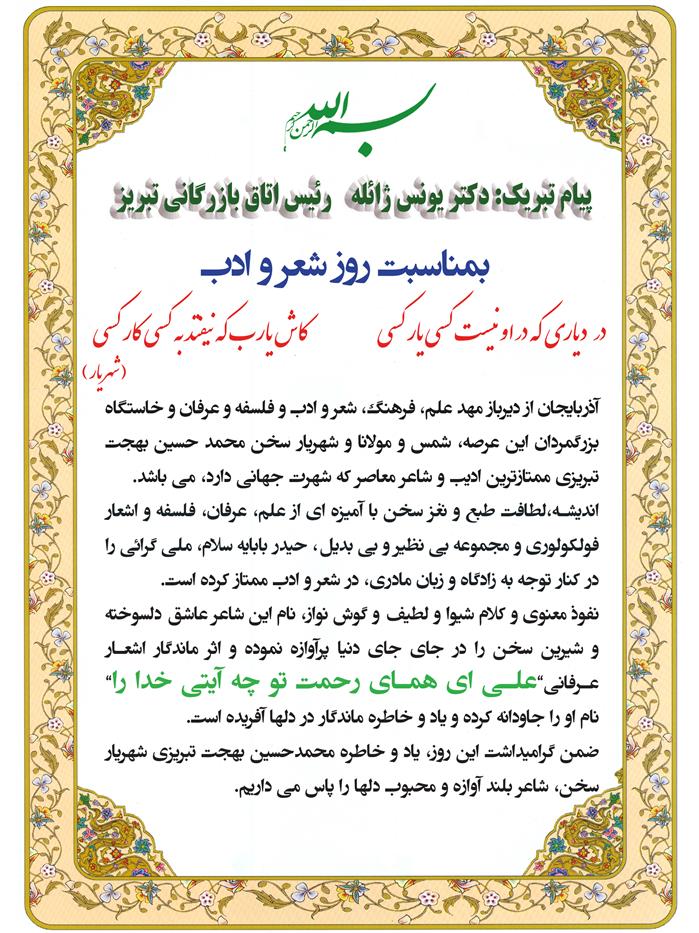 بسم الله الرحمن الرحیم
پیام تبریک: دکتر یونس ژائله رئیس اتاق بازرگانی تبریز
بمناسبت روز شعر و ادب
در دیاری که در او نیست کسی یار کسی کاش یارب که نیفتد به کسی کار کسی
(شهریار)
آذربایجان از دیرباز مهد علم، فرهنگ، شعر و ادب و فلسفه و عرفان و خاستگاه
بزرگمردان این عرصه، شمس و مولانا و شهریار سخن محمد حسین بهجت
تبریزی ممتازترین ادیب و شاعر معاصر که شهرت جهانی دارد، می باشد.
اندیشه،لطافت طبع و نغز سخن با آمیزه ای از علم، عرفان، فلسفه و اشعار
فولکولوری و مجموعه بی نظیر و بی بدیل، حیدر بابایه سلام، ملی گرائی را
در کنار توجه به زادگاه و زبان مادری، در شعر و ادب ممتاز کرده است.
نفوذ معنوی و کلام شیوا و لطیف و گوش نواز، نام این شاعر عاشق دلسوخته
و شیرین سخن را در جای جای دنیا پرآوازه نموده و اثر ماندگار اشعار
عرفانی“علی ای همای رحمت تو چه آیتی خدا را“
نام او را جاودانه کرده و یاد و خاطره ماندگار در دلها آفریده است.
ضمن گرامیداشت این روز، یاد و خاطره محمدحسین بهجت تبریزی شهریار
سخن، شاعر بلند آوازه و محبوب دلها را پاس می داریم.